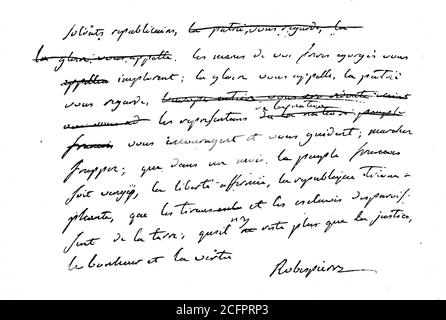 Soldats républicains, la patrie vous regarde, la
la gloire vous appelle. les manes de vos frères égorgés vous
appellent implorent ; la gloire vous appelle, la patrie
vous regarde,
les représentans de la nation
français vous encouragent et vous guident ; marchez
frappez ; que dans un mois le peuple français
soit vengé, la liberté affermie, la république triom-
phante, que les tirans et les esclaves disparois-
sent de la terre ; qu'il n'y reste plus que la justice,
le bonheur et la vertu
Robespierre
alamy
Image ID: 2CFPRP3
www.alamy.com